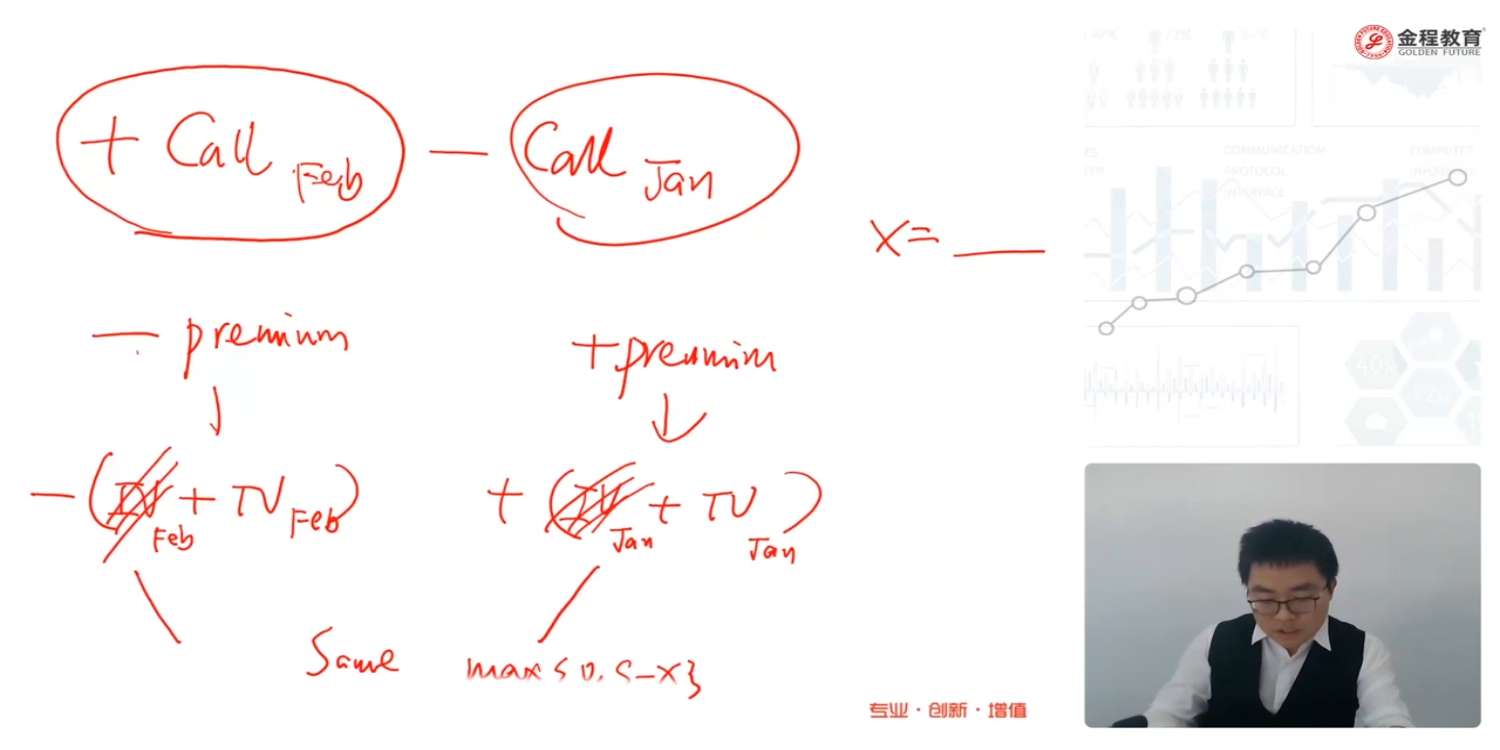 金程教育
GOLDEN FUTURE
+ Call Feb − Call Jan
X = ___
− premium
+ premium
− (IV Feb + TV Feb)
+ (IV Jan + TV Jan)
Same
max{0, S−X}
专业·创新·增值
COMMUNICATION
PROTOCOL